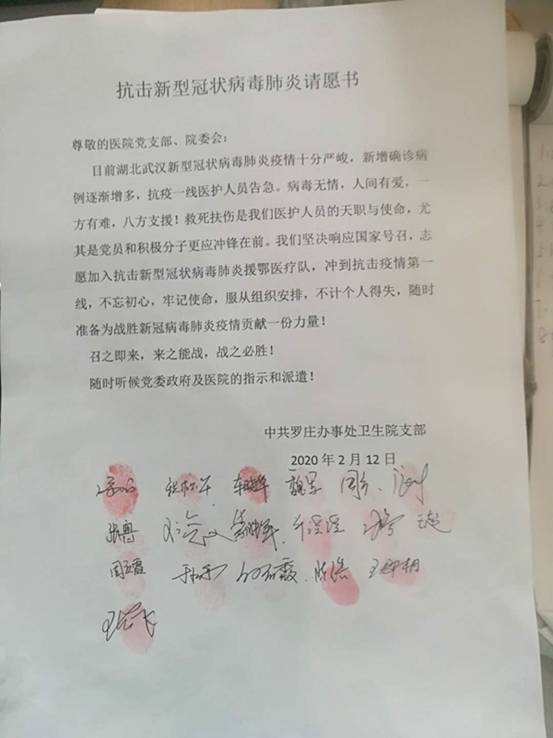 抗击新型冠状病毒肺炎请愿书
尊敬的医院党支部、院委会：
目前湖北武汉新型冠状病毒肺炎疫情十分严峻，新增确诊病
例逐渐增多，抗疫一线医护人员告急。病毒无情，人间有爱，一
方有难，八方支援！救死扶伤是我们医护人员的天职与使命，尤
其是党员和积极分子更应冲锋在前。我们坚决响应国家号召，志
愿加入抗击新型冠状病毒肺炎援鄂医疗队，冲到抗击疫情第一
线，不忘初心，牢记使命，服从组织安排，不计个人得失，随时
准备为战胜新冠病毒肺炎疫情贡献一份力量！
召之即来，来之能战，战之必胜！
随时听候党委政府及医院的指示和派遣！
中共罗庄办事处卫生院支部
2020 年 2 月 12 日